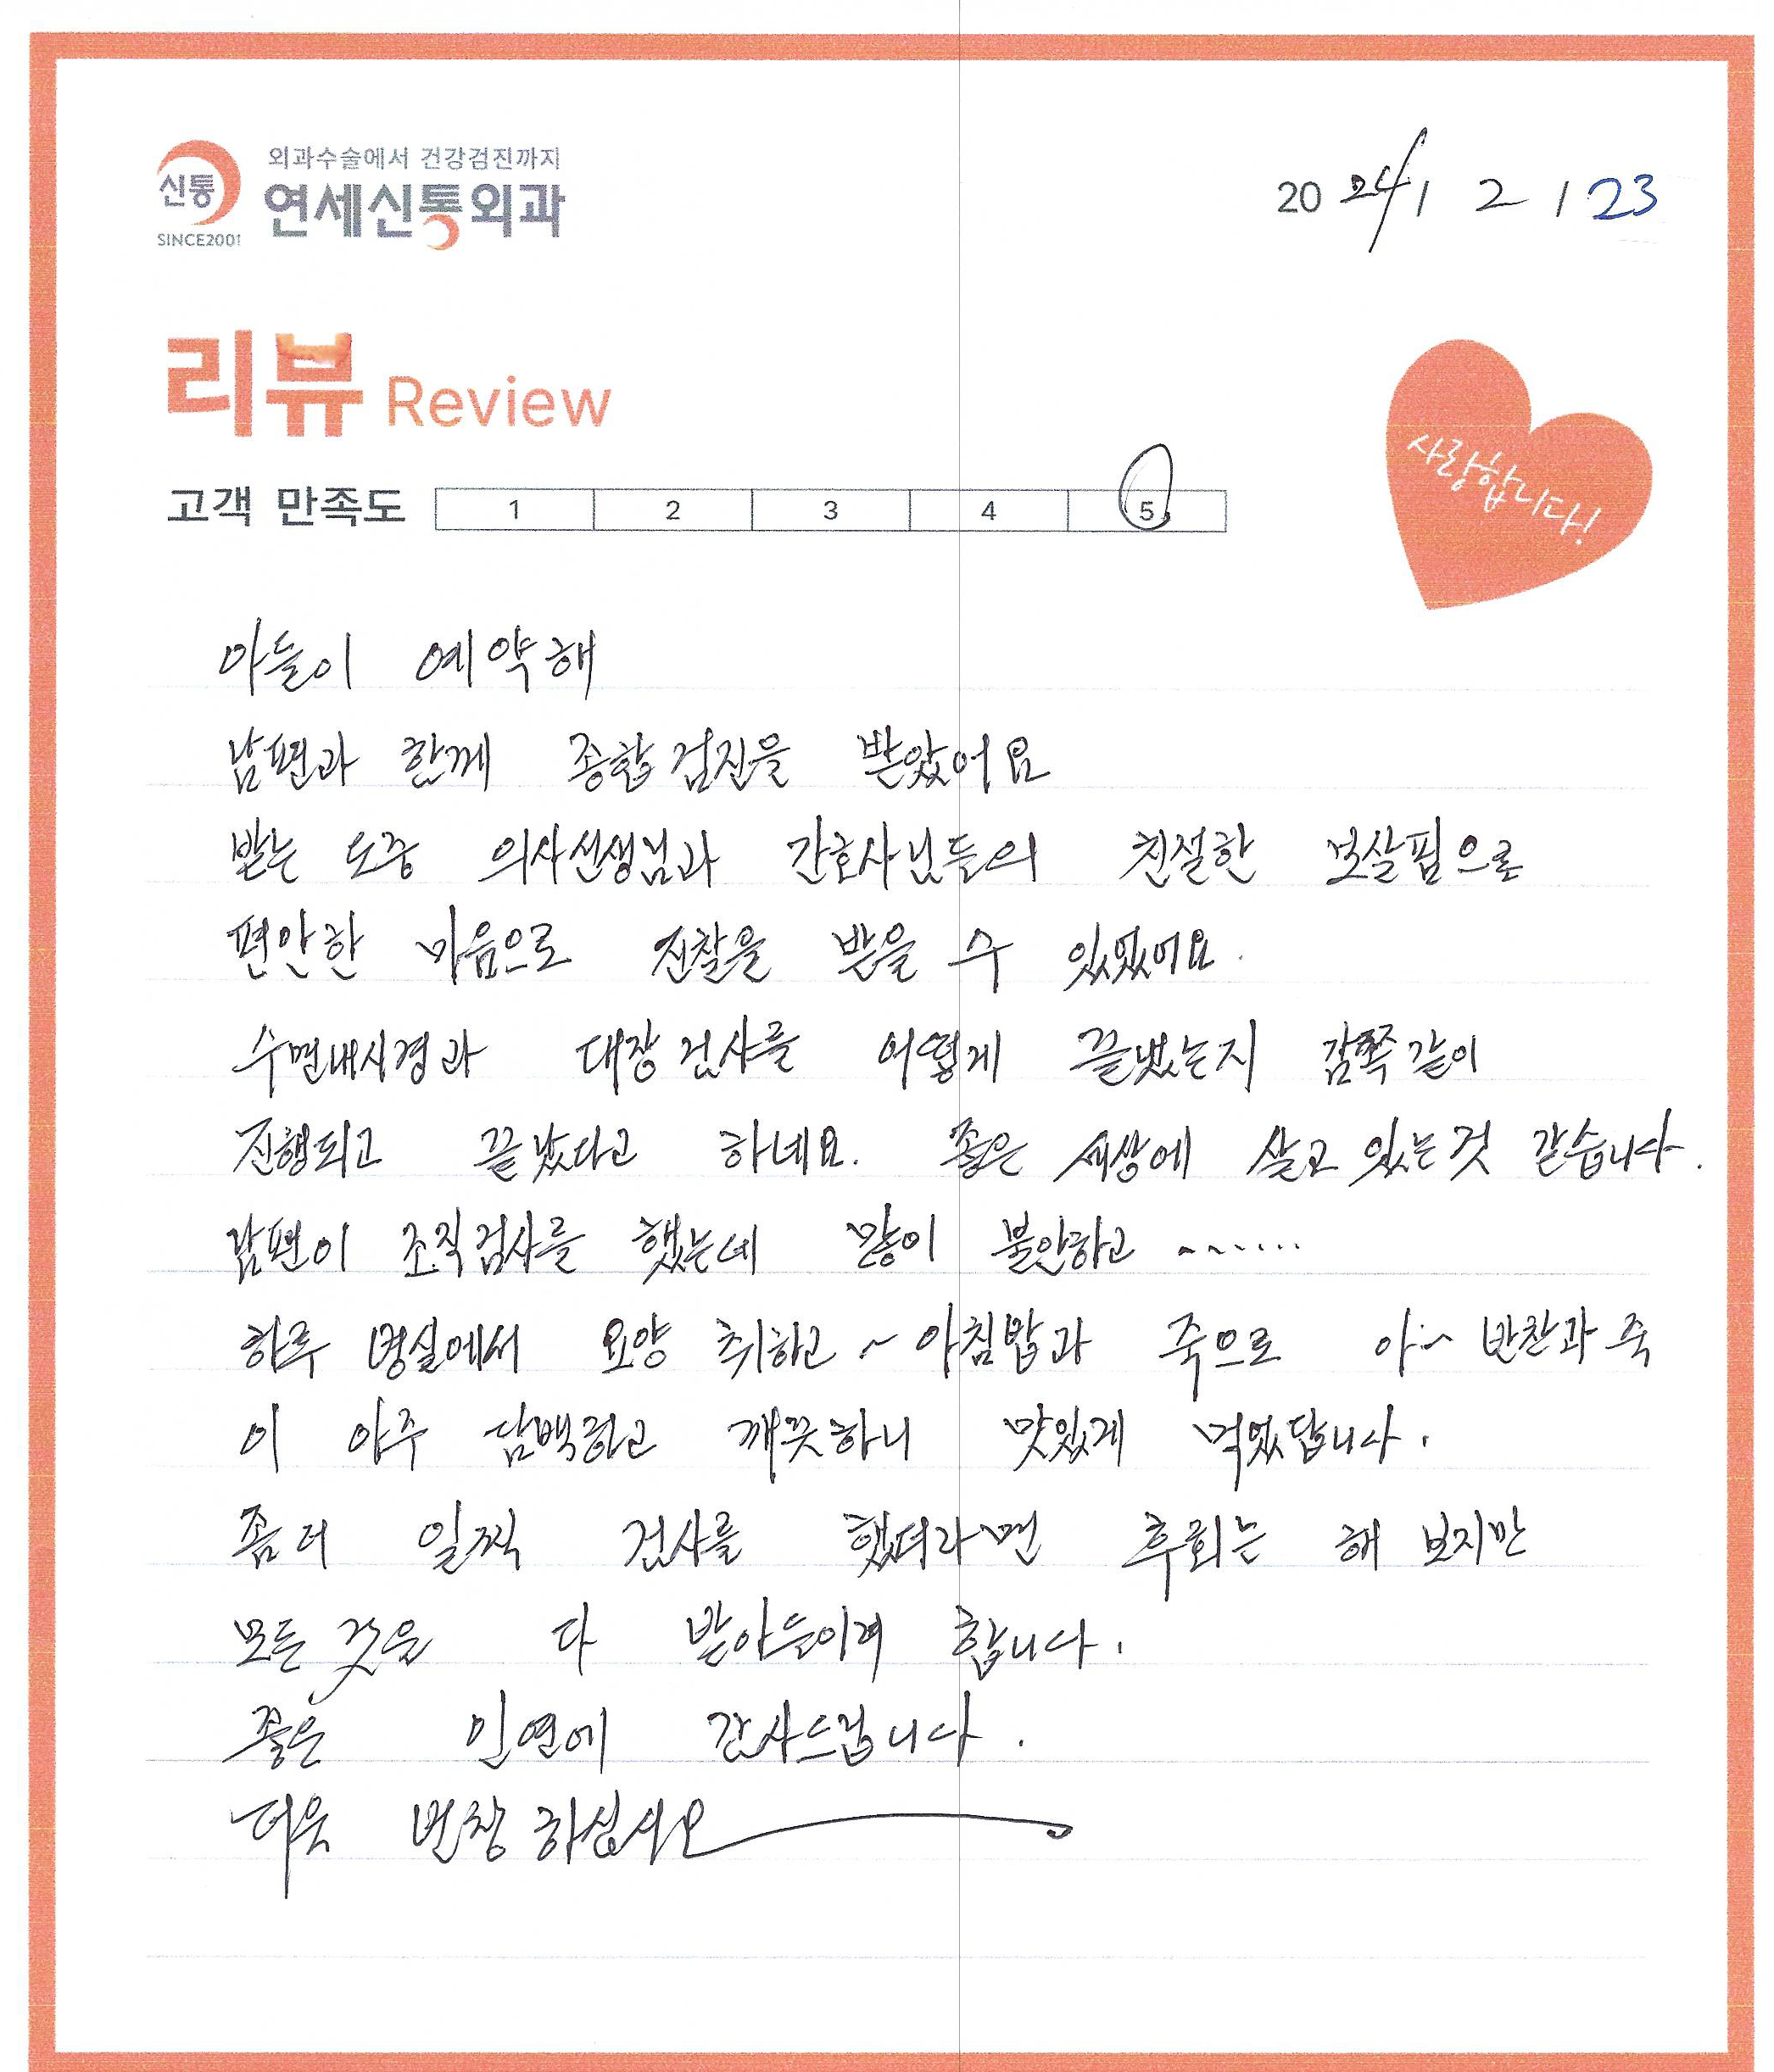 신통
SINCE2001
외과수술에서 건강검진까지
연세신통외과
2024/ 2 / 23
리뷰 Review
고객 만족도 1 2 3 4 5
사랑합니다!
아들이 예약해
남편과 함께 종합검진을 받았어요
받는 도중 의사선생님과 간호사님들의 친절한 보살핌으로
편안한 마음으로 진찰을 받을 수 있었어요.
수면내시경과 대장검사를 어떻게 끝냈는지 감쪽같이
진행되고 끝났다고 하네요. 좋은 세상에 살고 있는것 같습니다.
남편이 조직검사를 했는데 많이 불안하고 .......
하루 병실에서 요양 취하고 ~ 아침밥과 죽으로 아~ 반찬과 죽
이 아주 담백하고 깨끗하니 맛있게 먹었답니다.
좀더 일찍 검사를 했더라면 후회는 해 보지만
모든 것을 다 받아들이려 합니다.
좋은 인연에 감사드립니다.
더욱 번창 하십시오